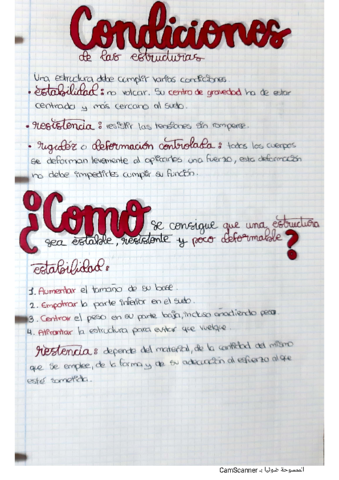 Condiciones
de las estructuras
Una estructura debe cumplir varias condiciones
• estabilidad: no volcar. Su centro de gravedad ha de estar
centrado y más cercano al suelo.
• resistencia: resistir las tensiones sin romperse.
• rigidez o deformación controlada: todos los cuerpos
se deforman levemente al aplicarles una fuerza, esta deformación
no debe impedirles cumplir su función.
¿Como se consigue que una estructura
sea estable, resistente y poco deformable?
estabilidad:
1. Aumentar el tamaño de su base.
2. Empotrar la parte inferior en el suelo.
3. Centrar el peso en su parte baja, incluso añadiendo peso
4. Atirantar la estructura para evitar que vuelque.
restencia: depende del material, de la cantidad del mismo
que se emplee, de la forma y de su adecuación al esfuerzo al que
esté sometida.
الممسوحة ضوئيا بـ CamScanner